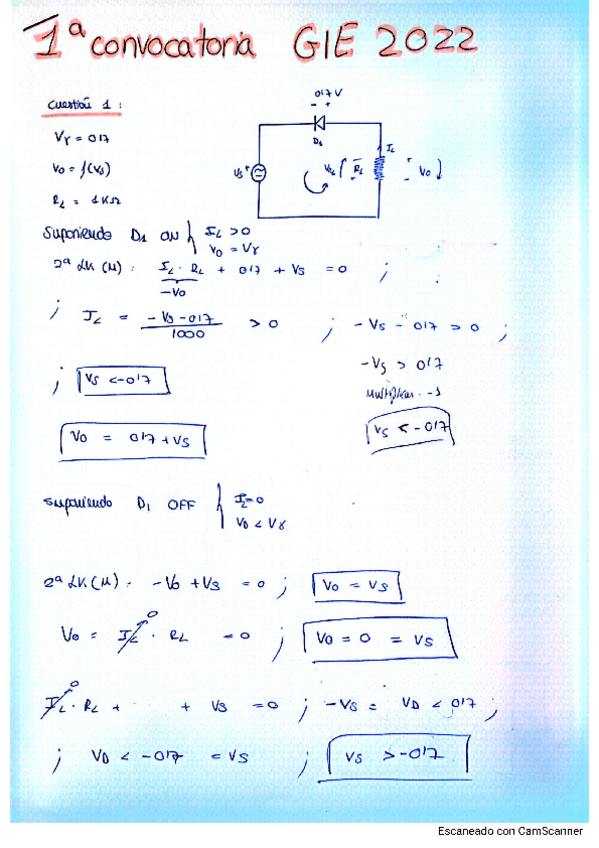 1ª convocatoria GIE 2022
Cuestión 1 :
0'7 V
- +
Vγ = 0'7
D1
IL
Vo = f(Vs)
Vs
RL
Vo
RL = 1KΩ
Suponiendo D1 ON { IL > 0
VD = Vγ
2ª LK (M) : IL · RL + 0'7 + Vs = 0 ;
-Vo
; IL = -Vs - 0'7 / 1000 > 0 ; -Vs - 0'7 > 0 ;
-Vs > 0'7
; Vs < -0'7
multiplicar · -1
Vo = 0'7 + Vs
Vs < -0'7
Suponiendo D1 OFF { IL = 0
VD < Vγ
2ª LK (M) : - Vo + Vs = 0 ; Vo = Vs
Vo = IL · RL = 0 ; Vo = 0 = Vs
0
IL · RL + + Vs = 0 ; -Vs = VD < 0'7 ;
0
; VD < -0'7 = Vs ; Vs > -0'7
Escaneado con CamScanner